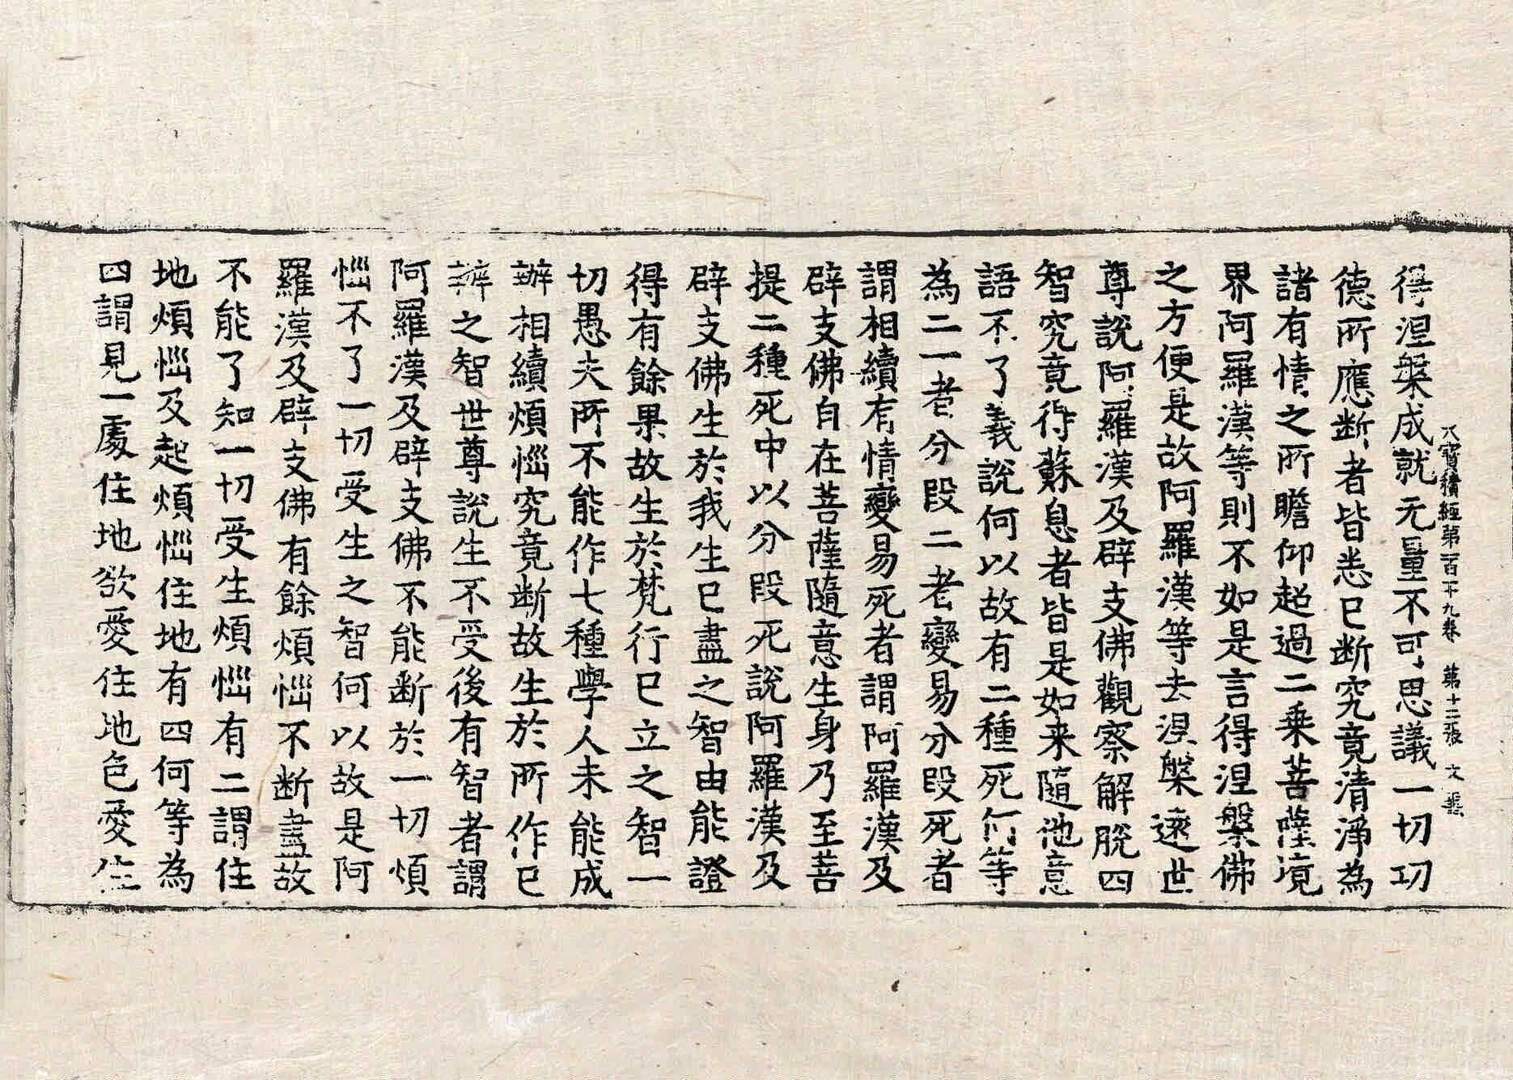 寶積經第百十九卷 第十二張 文
得涅槃成就无量不可思議一切功
德所應断者皆悉已断究竟清淨為
諸有情之所瞻仰超過二乘菩薩境
界阿羅漢等則不如是言得涅槃佛
之方便是故阿羅漢等去涅槃遠世
尊說阿羅漢及辟支佛觀察解脫四
智究竟得蘇息者皆是如来隨他意
語不了義說何以故有二種死何等
為二一者分段二者變易分段死者
謂相續有情變易死者謂阿羅漢及
辟支佛自在菩薩隨意生身乃至菩
提二種死中以分段死說阿羅漢及
辟支佛生於我生已盡之智由能證
得有餘果故生於梵行已立之智一
切愚夫所不能作七種學人未能成
辦相續煩惱究竟断故生於所作已
辦之智世尊說生不受後有智者謂
阿羅漢及辟支佛不能断於一切煩
惱不了一切受生之智何以故是阿
羅漢及辟支佛有餘煩惱不断盡故
不能了知一切受生煩惱有二謂住
地煩惱及起煩惱住地有四何等為
四謂見一處住地欲愛住地色愛住